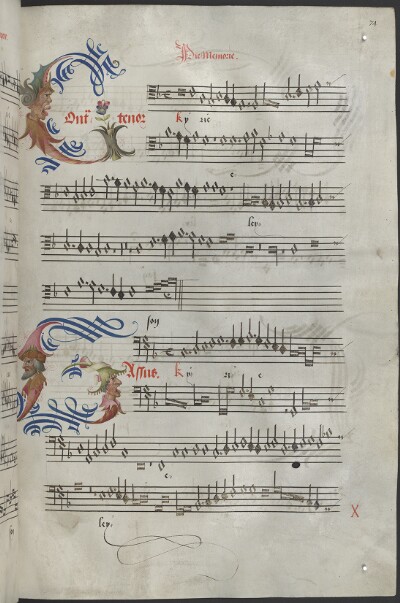 Pie Memorie.
Cont̃ tenor Kyrie
e
ley
son
Bassus. Kyri e
e
ley.
X